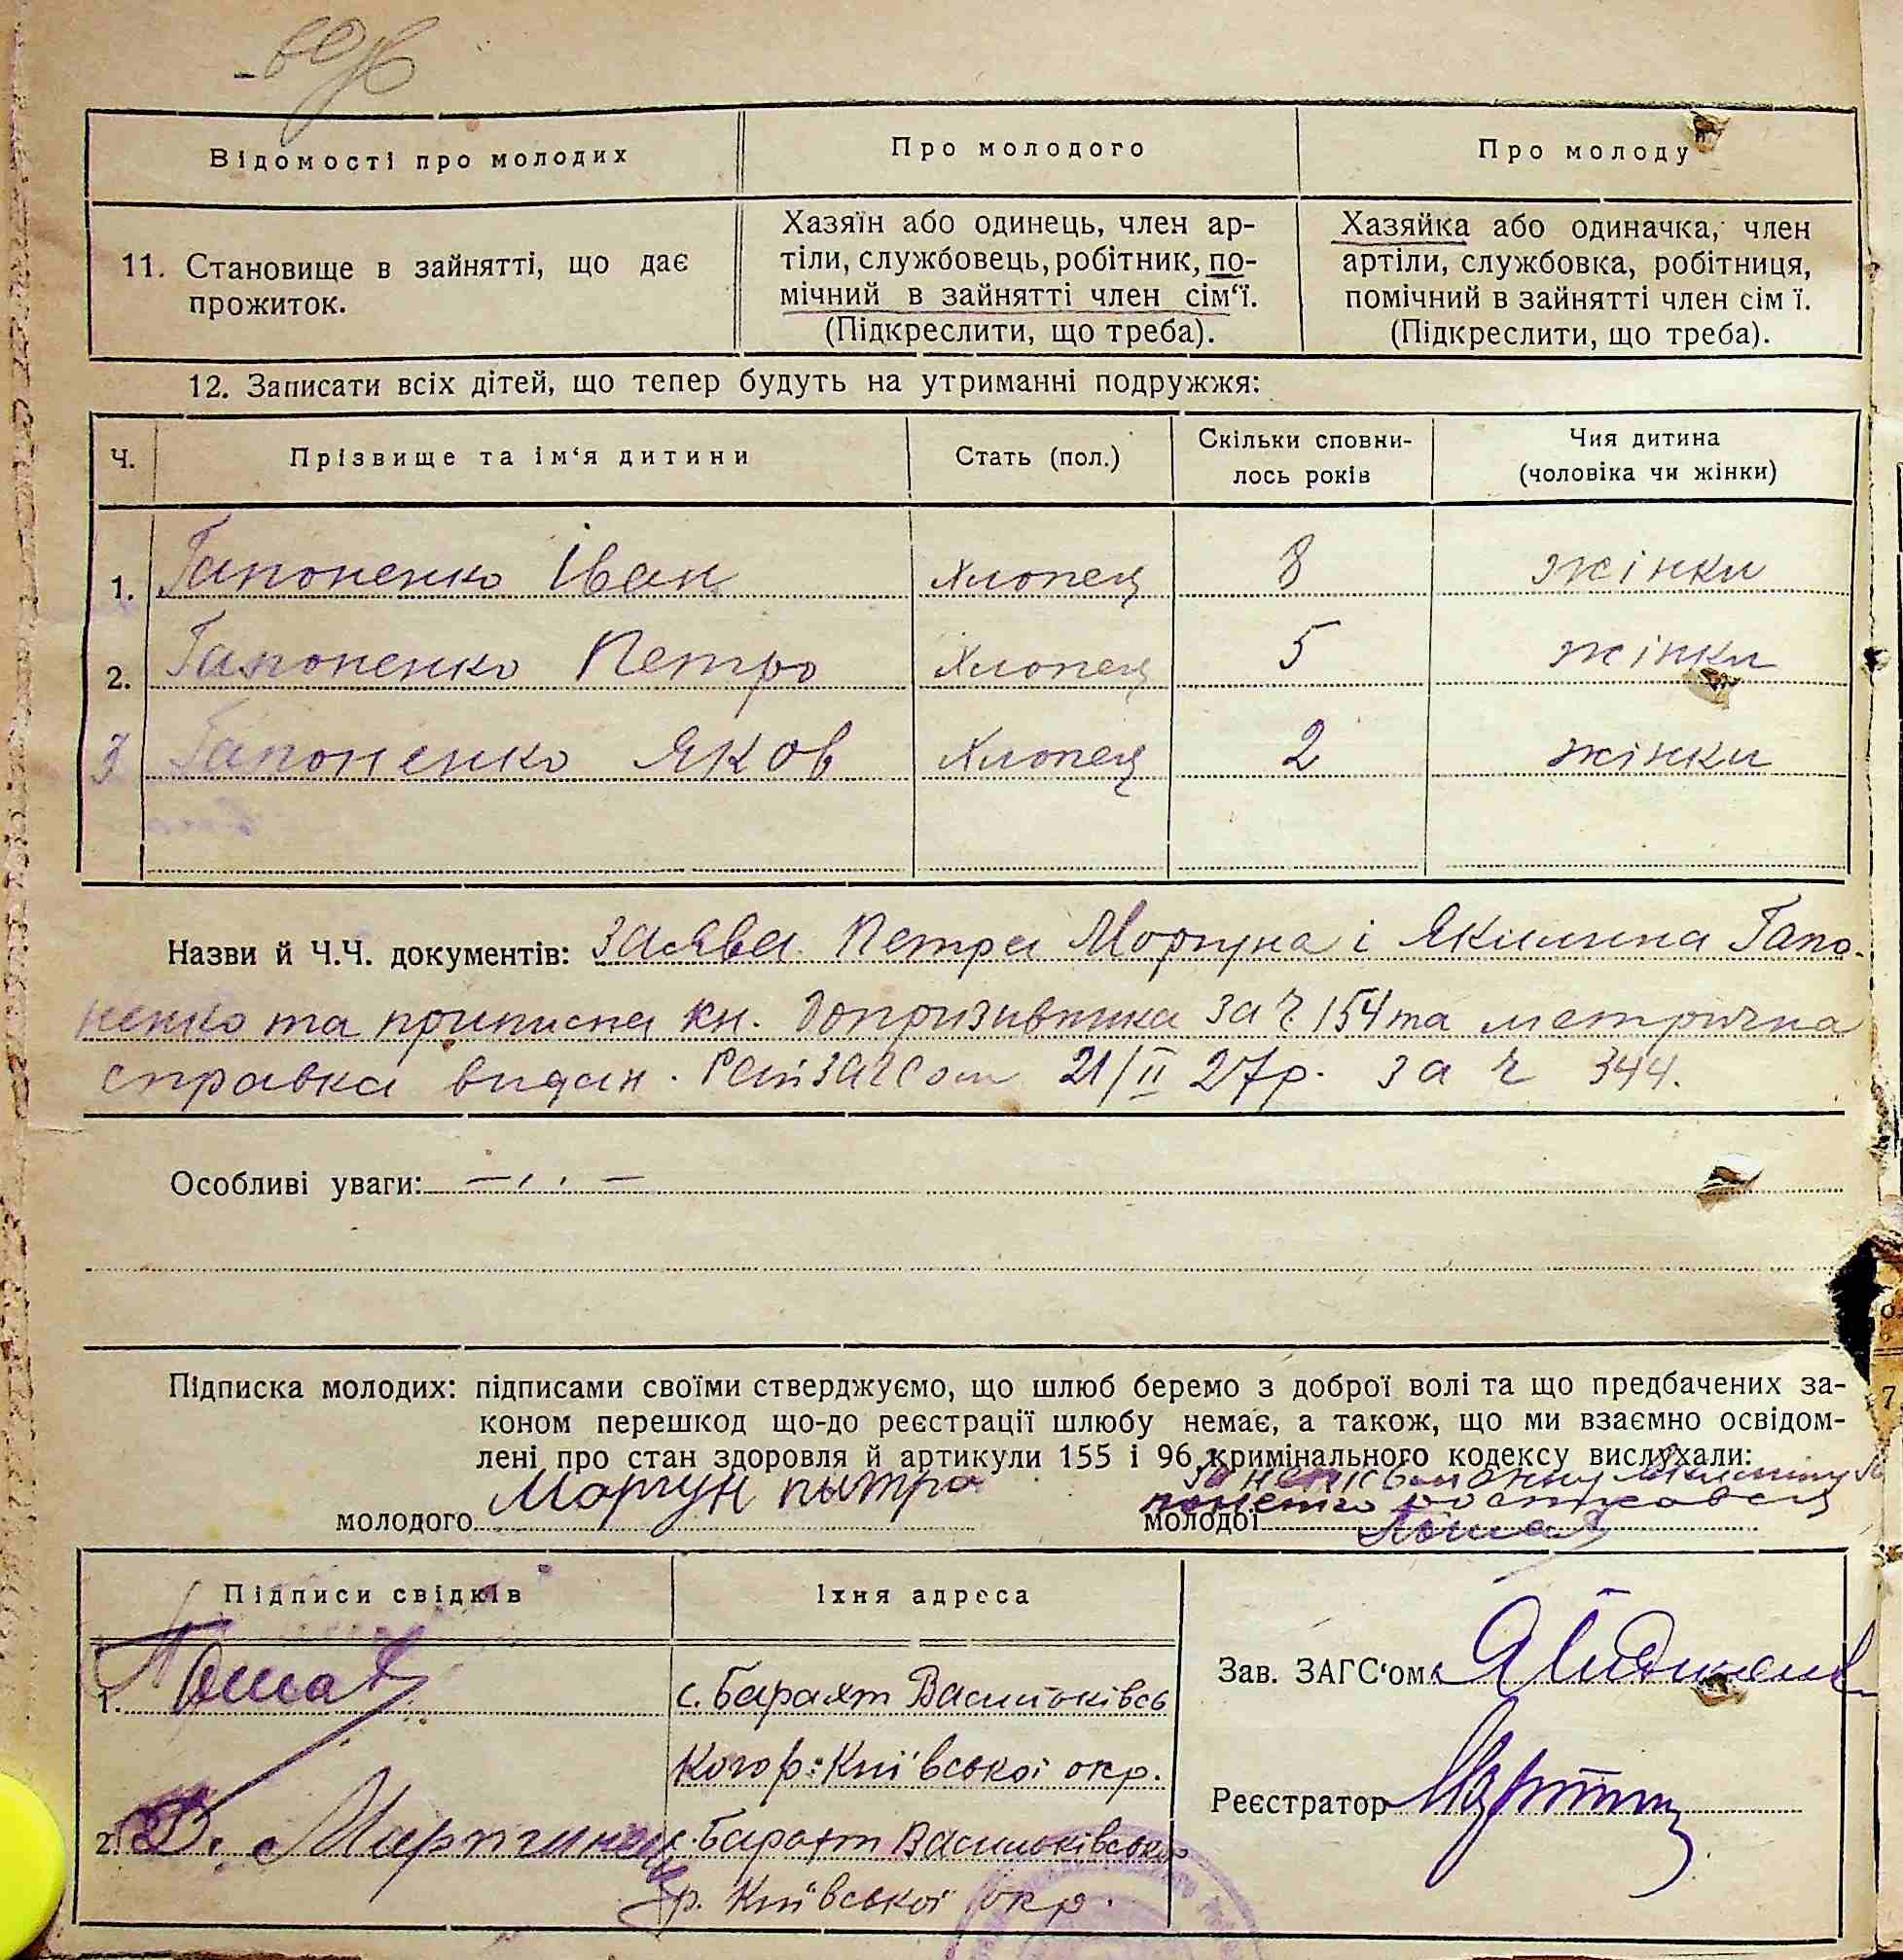 Відомості про молодих
Про молодого
Про молоду
11. Становище в зайнятті, що дає
прожиток.
Хазяїн або одинець, член ар-
тіли, службовець, робітник, по-
мічний в зайнятті член сім‘ї.
(Підкреслити, що треба).
Хазяйка або одиначка, член
артіли, службовка, робітниця,
помічний в зайнятті член сім ї.
(Підкреслити, що треба).
12. Записати всіх дітей, що тепер будуть на утриманні подружжя:
Ч.
Прізвище та ім‘я дитини
Стать (пол.)
Скільки сповни-
лось років
Чия дитина
(чоловіка чи жінки)
1. Гапоненко Іван хлопец 8 жінки
2. Гапоненко Петро хлопец 5 жінки
3 Гапоненко Яков хлопец 2 жінки
Назви й Ч.Ч. документів: заява Петра Моргуна і Якилина Гапо-
ненко та приписна кн. допризивника за ч. 154 та метрична
справка видан. Райзагсом 21/II 27р. за ч 344.
Особливі уваги:
Підписка молодих: підписами своїми стверджуємо, що шлюб беремо з доброї волі та що предбачених за-
коном перешкод що-до реєстрації шлюбу немає, а також, що ми взаємно освідом-
лені про стан здоровля й артикули 155 і 96 кримінального кодексу вислухали:
молодого Моргун пытро
молодої
Підписи свідків
Їхня адреса
1.
с. Барахт Васильківськ
Когор: Київської окр.
2. Мартинец
с. Барахт Васильківськ
р. Київської окр.
Зав. ЗАГС‘ом
Реєстратор